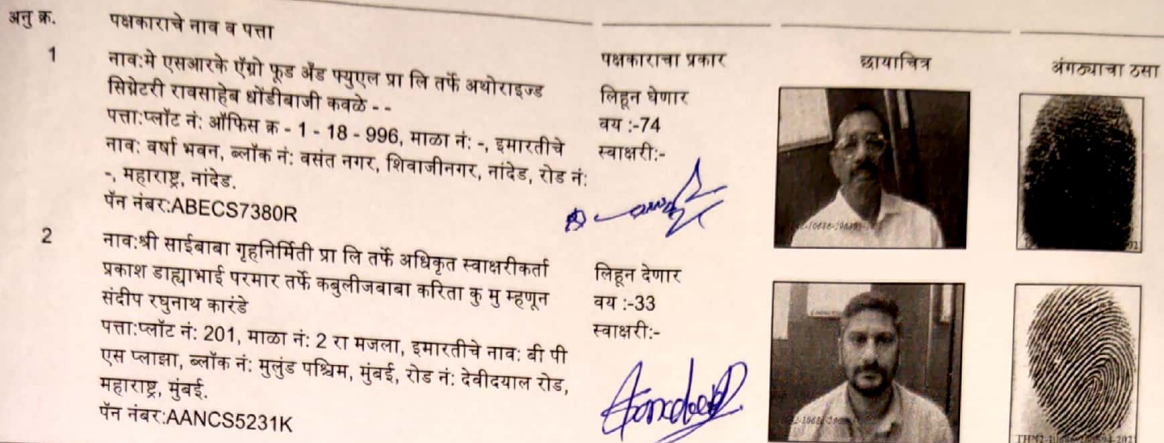 अनु क्र. पक्षकाराचे नाव व पत्ता पक्षकाराचा प्रकार छायाचित्र अंगठ्याचा ठसा
1 नाव:मे एसआरके ऍग्रो फूड अँड फ्युएल प्रा लि तर्फे अथोराइज्ड
सिग्नेटरी रावसाहेब धोंडीबाजी कवळे - -
पत्ता:प्लॉट नं: ऑफिस क्र - 1 - 18 - 996, माळा नं: -, इमारतीचे
नाव: वर्षा भवन, ब्लॉक नं: वसंत नगर, शिवाजीनगर, नांदेड, रोड नं:
-, महाराष्ट्र, नांदेड.
पॅन नंबर:ABECS7380R
लिहून घेणार
वय :-74
स्वाक्षरी:-
2 नाव:श्री साईबाबा गृहनिर्मिती प्रा लि तर्फे अधिकृत स्वाक्षरीकर्ता
प्रकाश डाह्याभाई परमार तर्फे कबुलीजबाबा करिता कु मु म्हणून
संदीप रघुनाथ कारंडे
पत्ता:प्लॉट नं: 201, माळा नं: 2 रा मजला, इमारतीचे नाव: बी पी
एस प्लाझा, ब्लॉक नं: मुलुंड पश्चिम, मुंबई, रोड नं: देवीदयाल रोड,
महाराष्ट्र, मुंबई.
पॅन नंबर:AANCS5231K
लिहून देणार
वय :-33
स्वाक्षरी:-